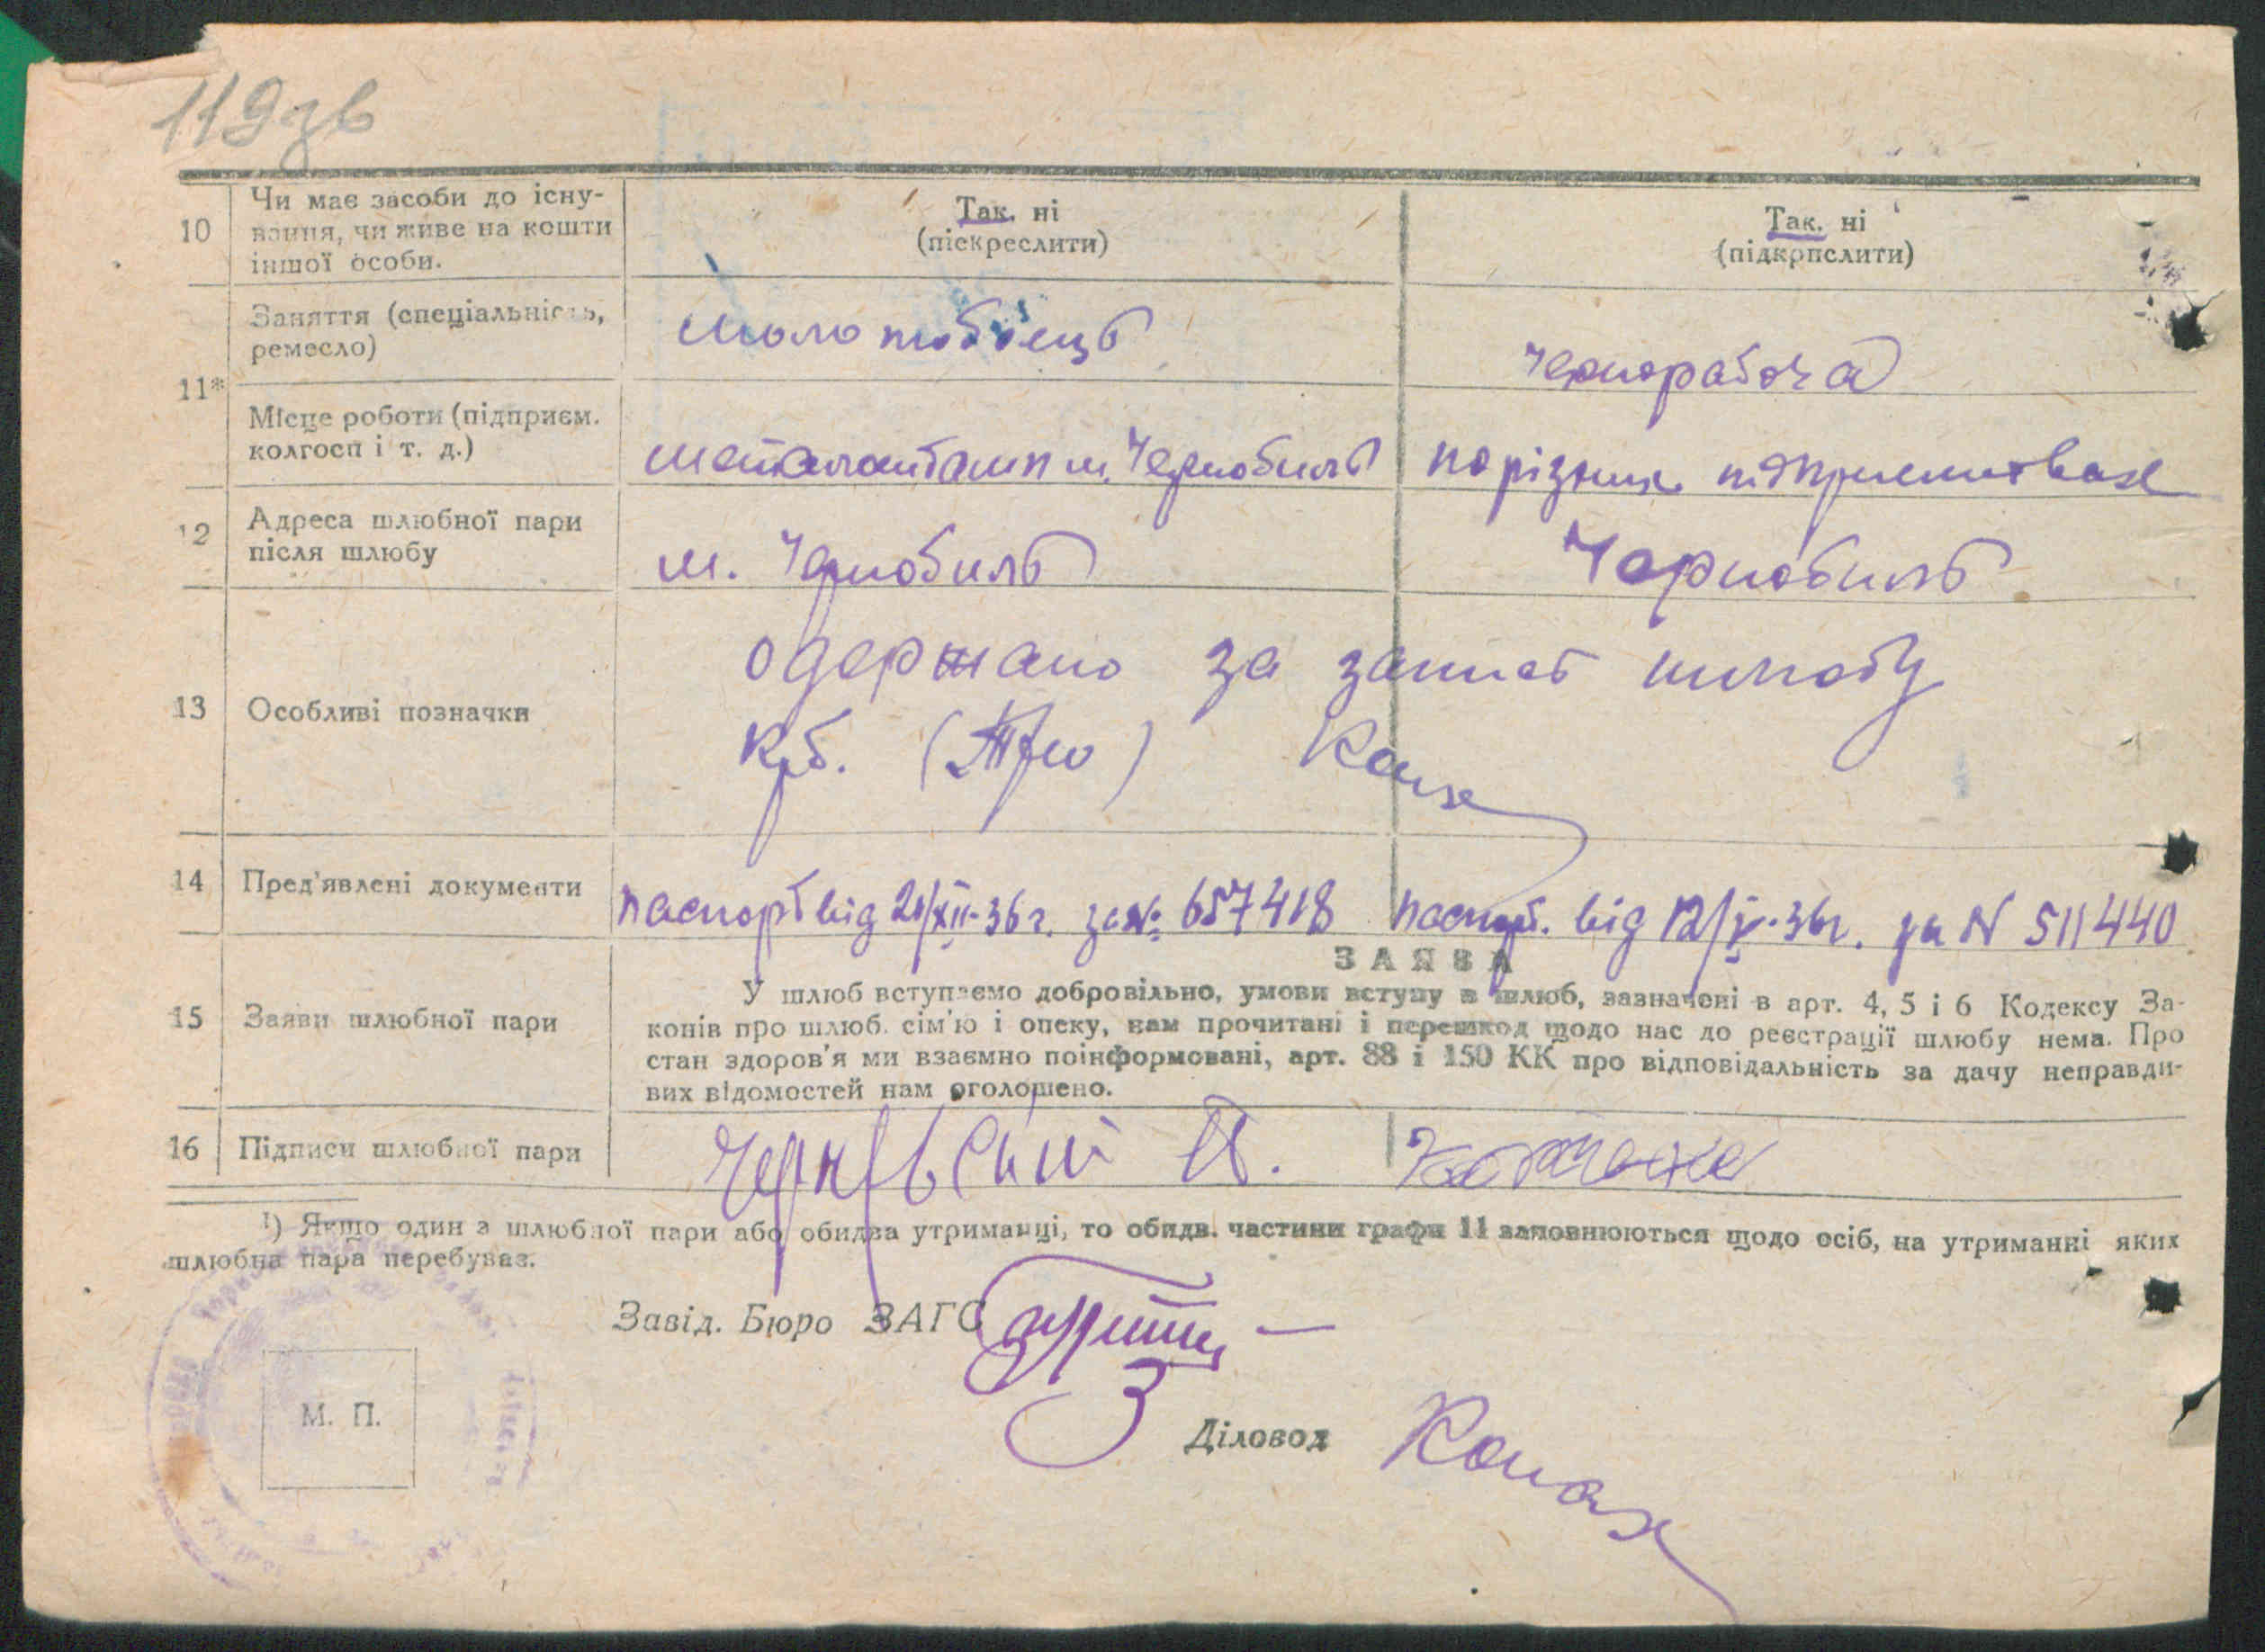 119 зв
10 Чи має засоби до існу-
вання, чи живе на кошти
іншої особи.
Так, ні
(піскреслити)
Так, ні
(підкрпслити)
11*
Заняття (спеціальність,
ремесло)
молотобоець
Чернорабоча
Місце роботи (підприєм.
колгосп і т. д.)
м. Чернобиль
по різних
12 Адреса шлюбної пари
після шлюбу
м. Чернобиль
Чернобиль
13 Особливі позначки
одержано за запись шлюбу
крб. (Три)
14 Пред'явлені документи
паспорт від 21/XII-36 г. за № 657418
паспорт. від 12/V-36г. за N 511440
15 Заяви шлюбної пари
ЗАЯВА
У шлюб вступаємо добровільно, умови вступу в шлюб, зазначені в арт. 4, 5 і 6 Кодексу За-
конів про шлюб. сім'ю і опеку, нам прочитані і перешкод щодо нас до реєстрації шлюбу нема. Про
стан здоров'я ми взаємно поінформовані, арт. 88 і 150 КК про відповідальність за дачу неправди-
вих відомостей нам оголошено.
16 Підписи шлюбної пари
¹) Якщо один з шлюбної пари або обидва утриманці, то обидв. частини графи 11 заповнюються щодо осіб, на утриманні яких
шлюбна пара перебуває.
Завід. Бюро ЗАГС
М. П.
Діловод